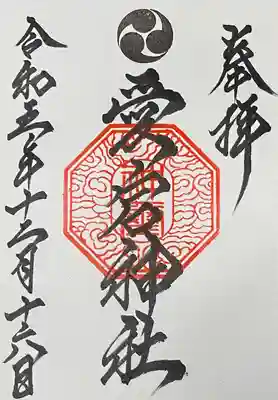 奉拝
愛宕神社
令和五年十二月十六日